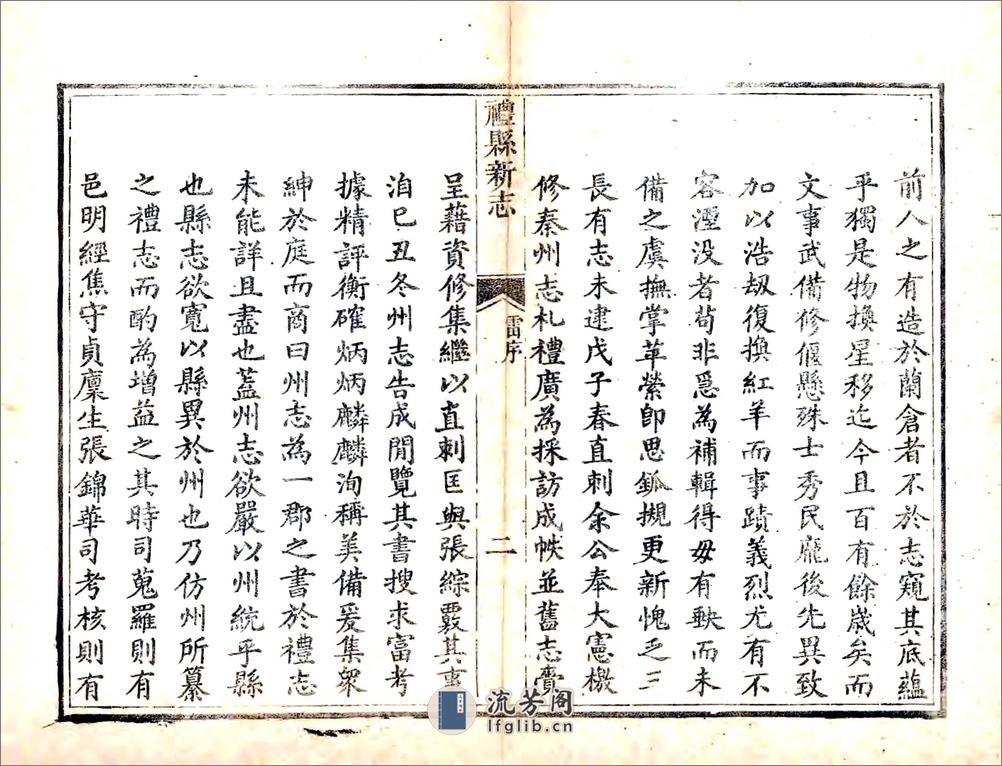 前人之有造於蘭倉者不於志窺其底蘊
乎獨是物換星移迄今且百有餘歲矣而
文事武備修偃懸殊士秀民龐後先異致
加以浩刼復換紅羊而事蹟義烈尤有不
容湮没者苟非亟為補輯得毋有缺而未
備之虞撫掌革縈卽思鈲摫更新愧乏三
長有志未逮戊子春直刺余公奉大憲檄
修秦州志札禮廣為採訪成帙並舊志賫
禮縣新志
雷序
二
呈藉資修集繼以直刺匡與張綜覈其事
洎巳丑冬州志告成閒覽其書搜求富考
據精評衡確炳炳麟麟洵稱美備爰集衆
紳於庭而商曰州志為一郡之書於禮志
未能詳且盡也蓋州志欲嚴以州統乎縣
也縣志欲寬以縣異於州也乃仿州所纂
之禮志而酌為增益之其時司蒐羅則有
邑明經焦守貞廩生張錦華司考核則有
流芳阁
lfglib.cn